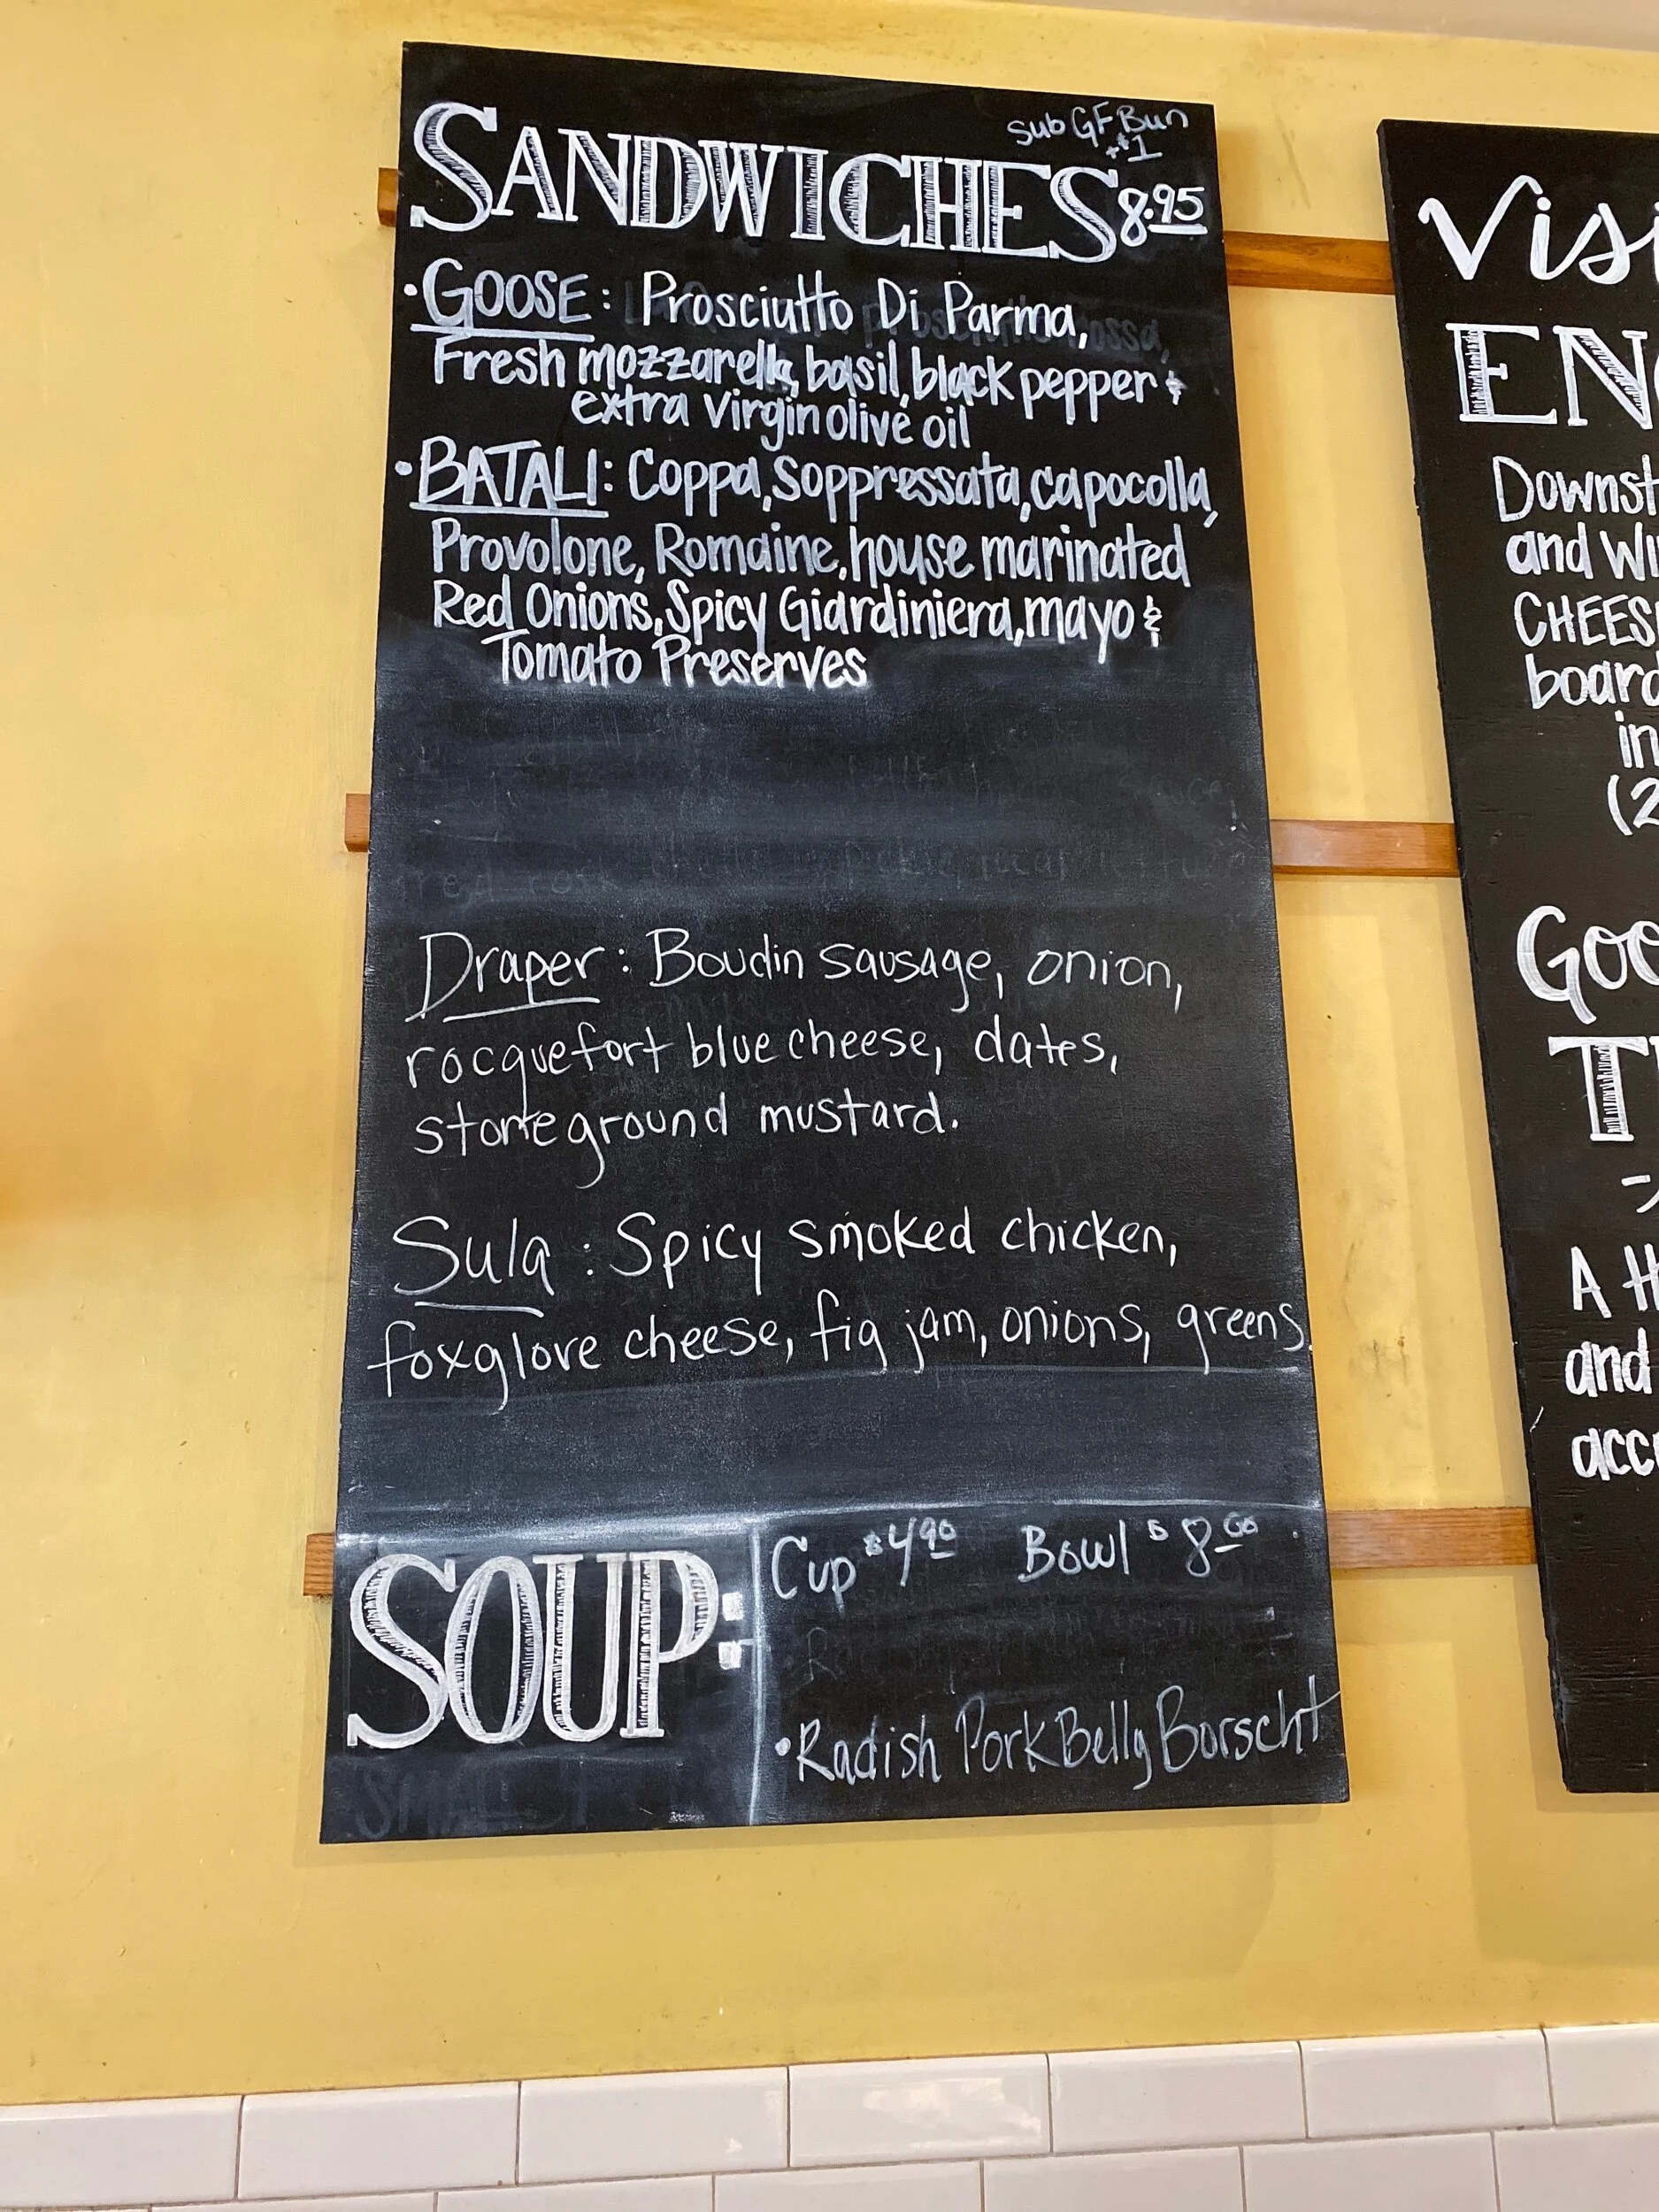 sub GF Bun
+$1
SANDWICHES 8.95
• GOOSE: Prosciutto Di Parma,
Fresh mozzarella, basil, black pepper &
extra virgin olive oil
• BATALI: Coppa, Soppressata, capocolla,
Provolone, Romaine, house marinated
Red Onions, Spicy Giardiniera, mayo &
Tomato Preserves
Draper: Boudin sausage, onion,
rocquefort blue cheese, dates,
stone ground mustard.
Sula: Spicy smoked chicken,
foxglove cheese, fig jam, onions, greens.
SOUP:
Cup $4.90 Bowl $8.00
• Radish Pork Belly Borscht
Visi
EN
Downst
and Wi
CHEES
board
in
(2
Goo
T
A H
and
acc